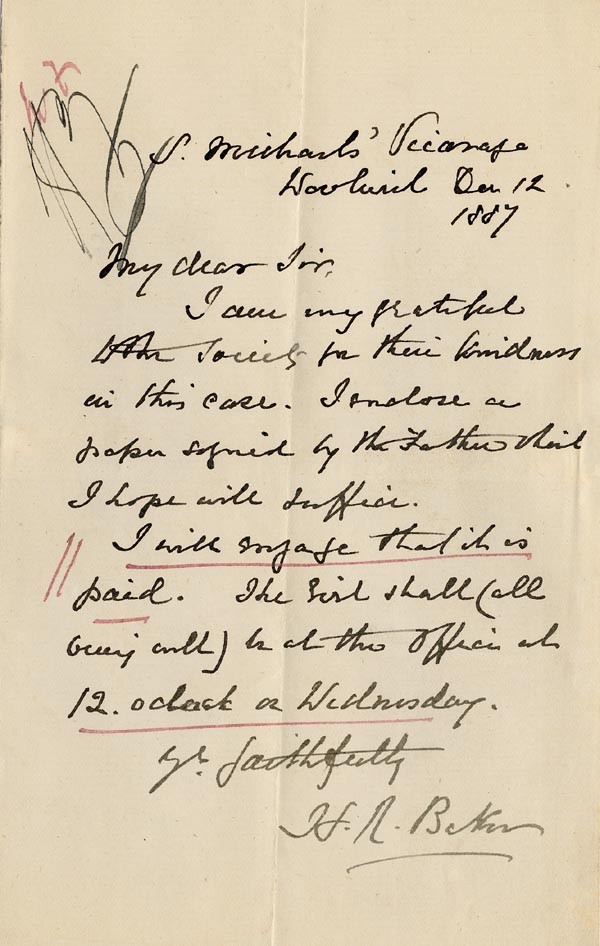 S. Michaels' Vicarage
Woolwich Dec 12
1887
My dear Sir,
I am very grateful
to the Society for their kindness
in this case. I enclose a
paper signed by the Father which
I hope will suffice.
I will engage that it is
paid. The Girl shall (all
being well) be at the Office at
12. oclock on Wednesday.
Yr. faithfully
H. R. Baker